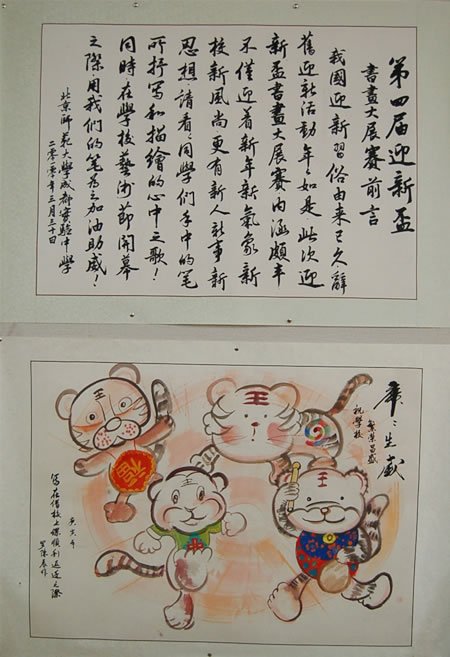 第四届迎新盃
書畫大展賽前言
我國迎新習俗由来已久辭
舊迎新活動年年如是此次迎
新盃書畫大展賽内涵頗丰
不僅迎着新年新氣象新
校新風尚更有新人新事新
思想請看：同學们手中的笔
所抒写和描繪的心中之歌！
同時在學校藝術節開幕
之際用我们的笔為之加油助威！
北京師範大學成都實驗中學
二零一零年三月三十日
虎々生威
祝學校
繁荣昌盛
王
王
王
王
福
庚寅年
寫在借校上課順利返遷之際